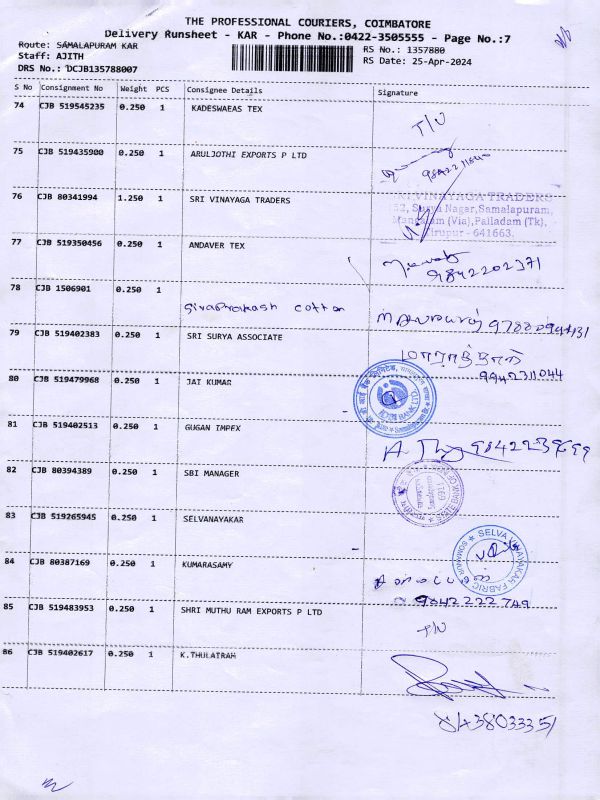 THE PROFESSIONAL COURIERS, COIMBATORE
Delivery Runsheet - KAR - Phone No.:0422-3505555 - Page No.:7
Route: SAMALAPURAM KAR
RS No.: 1357880
Staff: AJITH
RS Date: 25-Apr-2024
DRS No.: DCJB135788007
S No Consignment No Weight PCS Consignee Details Signature
74 CJB 519545235 0.250 1 KADESWAEAS TEX
T/U
75 CJB 519435900 0.250 1 ARULJOTHI EXPORTS P LTD
76 CJB 80341994 1.250 1 SRI VINAYAGA TRADERS
SRI VINAYAGA TRADERS
52, Surya Nagar, Samalapuram,
Mangalam (Via), Palladam (Tk),
Tirupur - 641663.
77 CJB 519350456 0.250 1 ANDAVER TEX
9842202371
78 CJB 1506901 0.250 1
Sivaprakash cotton
79 CJB 519402383 0.250 1 SRI SURYA ASSOCIATE
9942311044
80 CJB 519479968 0.250 1 JAI KUMAR
81 CJB 519402513 0.250 1 GUGAN IMPEX
82 CJB 80394389 0.250 1 SBI MANAGER
83 CJB 519265945 0.250 1 SELVANAYAKAR
SELVA VINAYAKAR FABRIC
84 CJB 80387169 0.250 1 KUMARASAMY
9842222749
85 CJB 519483953 0.250 1 SHRI MUTHU RAM EXPORTS P LTD
T/U
86 CJB 519402617 0.250 1 K.THULAIRAH